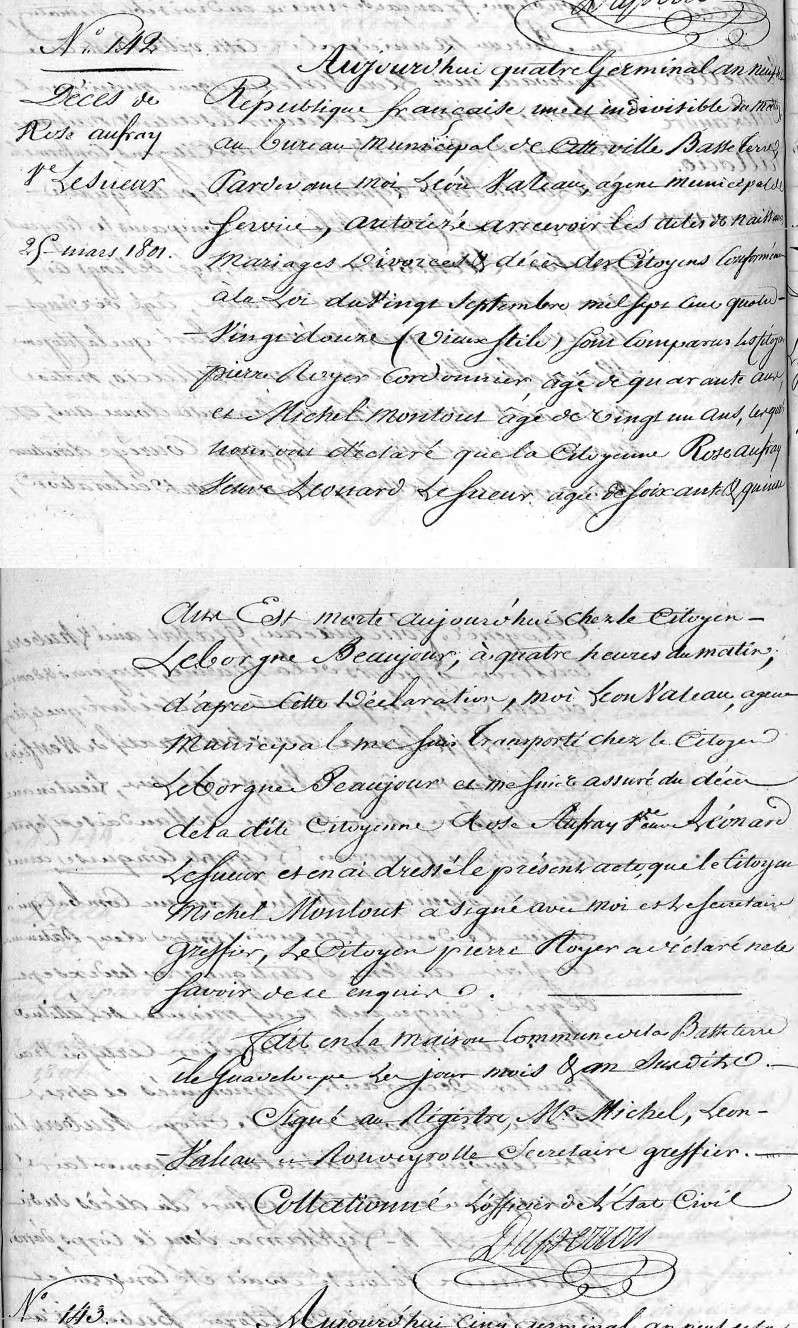 N.º 142
Décès de
Rose aufray
Vᵉ LeSueur
25 mars 1801.
Aujourd'hui quatre Germinal an neuf
République française une et indivisible du matin
au bureau municipal de Cette ville Basse terre
Pardevant moi Léon Valeau, agent municipal de
Service, autorizé a recevoir les actes de naissance
mariages Divorces & décès des Citoyens Conformém
a la Loi du Vingt Septembre mil sept Cent quatre-
-Vingt douze (vieux stile) sont Comparus les Citoy
pierre Royer Cordonnier, âgé de quarante ans,
et Michel montout âgé de vingt un ans, lesquels
nous ont déclaré que la Citoyenne Rose aufray
Veuve Léonard LeSueur agée de soixante & quinze
Ans Est morte aujourd'hui chez le Citoyen-
Leborgne Beaujour, à quatre heures du matin;
d'après Cette Déclaration, moi Léon Valeau, agent
Municipal me suis transporté chez le Citoyen
Leborgne Beaujour et me suis assuré du décès
de la dite Citoyenne Rose Aufray Vᵉᵘᵛᵉ Léonard
LeSueur et en ai dressé le présent acte, que le Citoyen
Michel Montout a signé avec moi et le Secretaire
greffier, Le Citoyen pierre Royer a déclaré ne le
savoir de ce enquis.
Fait en la maison Commune de la Basse terre
île Guadeloupe les jour mois & an Susdits.-
Signé au Régistre, Mᵉ Michel, Léon-
-Valeau et Rouveyrolle Secretaire greffier.-
Collationné L'officier de L'État Civil
Duperron
N.º 143.
Aujourd'hui cinq Germinal an neuf